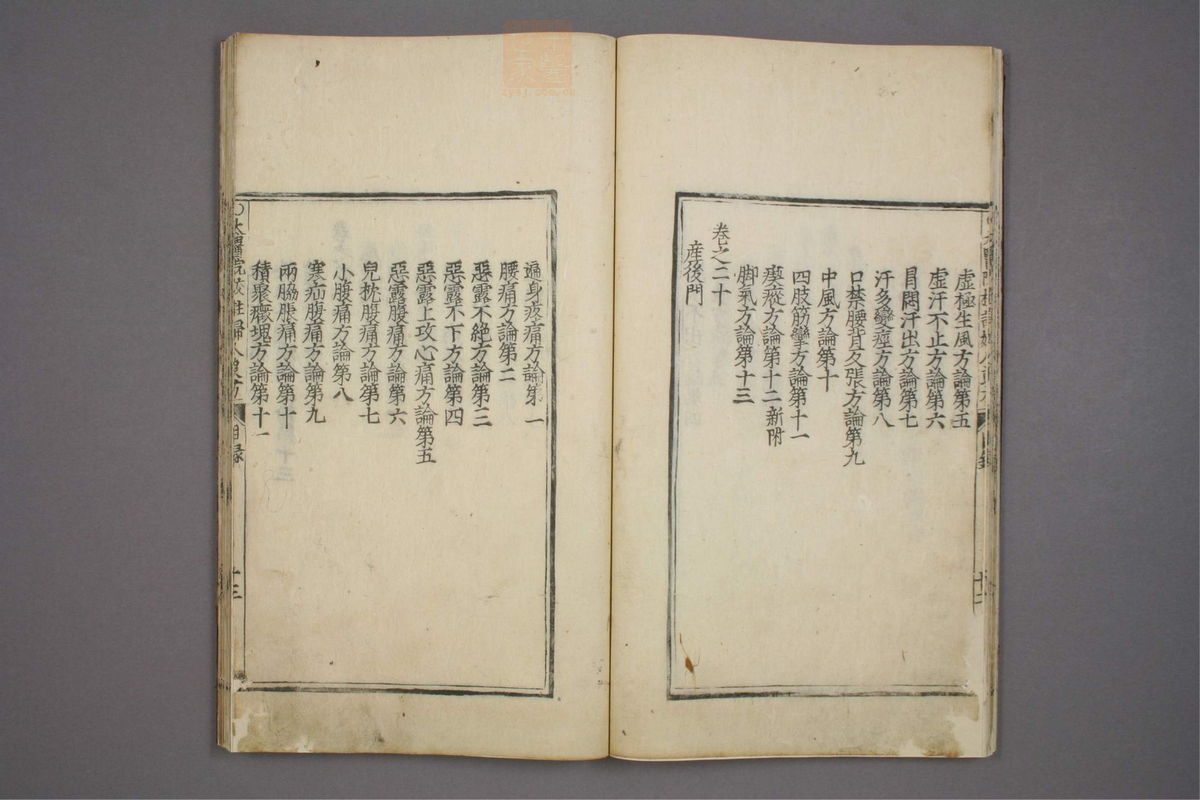 虛極生風方論第五
虛汗不止方論第六
冒悶汗出方論第七
汗多變痙方論第八
口禁腰背反張方論第九
中風方論第十
四肢筋攣方論第十一
瘈瘲方論第十二 新附
脚氣方論第十三
卷之二十
産後門
十二
遍身疼痛方論第一
腰痛方論第二
惡露不絶方論第三
惡露不下方論第四
惡露上攻心痛方論第五
惡露腹痛方論第六
兒枕腹痛方論第七
小腹痛方論第八
寒疝腹痛方論第九
兩脇脹痛方論第十
積聚癥塊方論第十一
太醫院校註婦人良方 目録 十三
zysj.com.cn